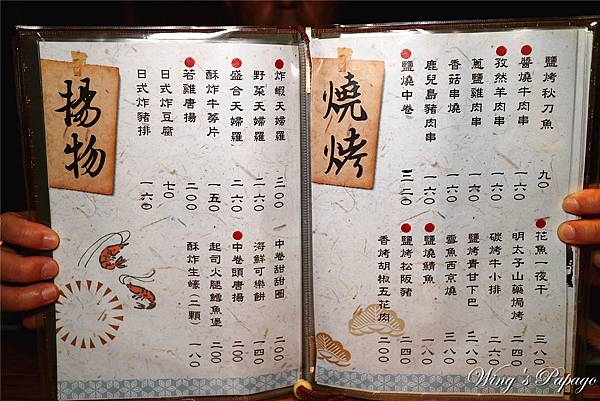 燒烤
鹽烤秋刀魚 九〇
醬燒牛肉串 一六〇
孜然羊肉串 一六〇
蔥鹽雞肉串 一六〇
香菇串燒 一六〇
鹿兒島豬肉串 一六〇
鹽燒中卷 三二〇
花魚一夜干 三八〇
明太子山藥焗烤 二〇〇
碳烤牛小排
鹽烤青甘下巴 三八〇
雪魚西京燒 三八〇
鹽燒鯖魚 一八〇
鹽烤松阪豬
香烤胡椒五花肉 二〇〇
揚物
炸蝦天婦羅 三〇〇
野菜天婦羅 二六〇
盛合天婦羅 二六〇
酥炸牛蒡片 一五〇
若雞唐揚 二〇〇
日式炸豆腐 七〇
日式炸豬排 一六〇
中卷甜甜圈 二〇〇
海鮮可樂餅 一四〇
中卷頭唐揚 二〇〇
起司火腿鱈魚堡 二〇〇
酥炸生蠔(二顆) 一八〇
Wing's Papago